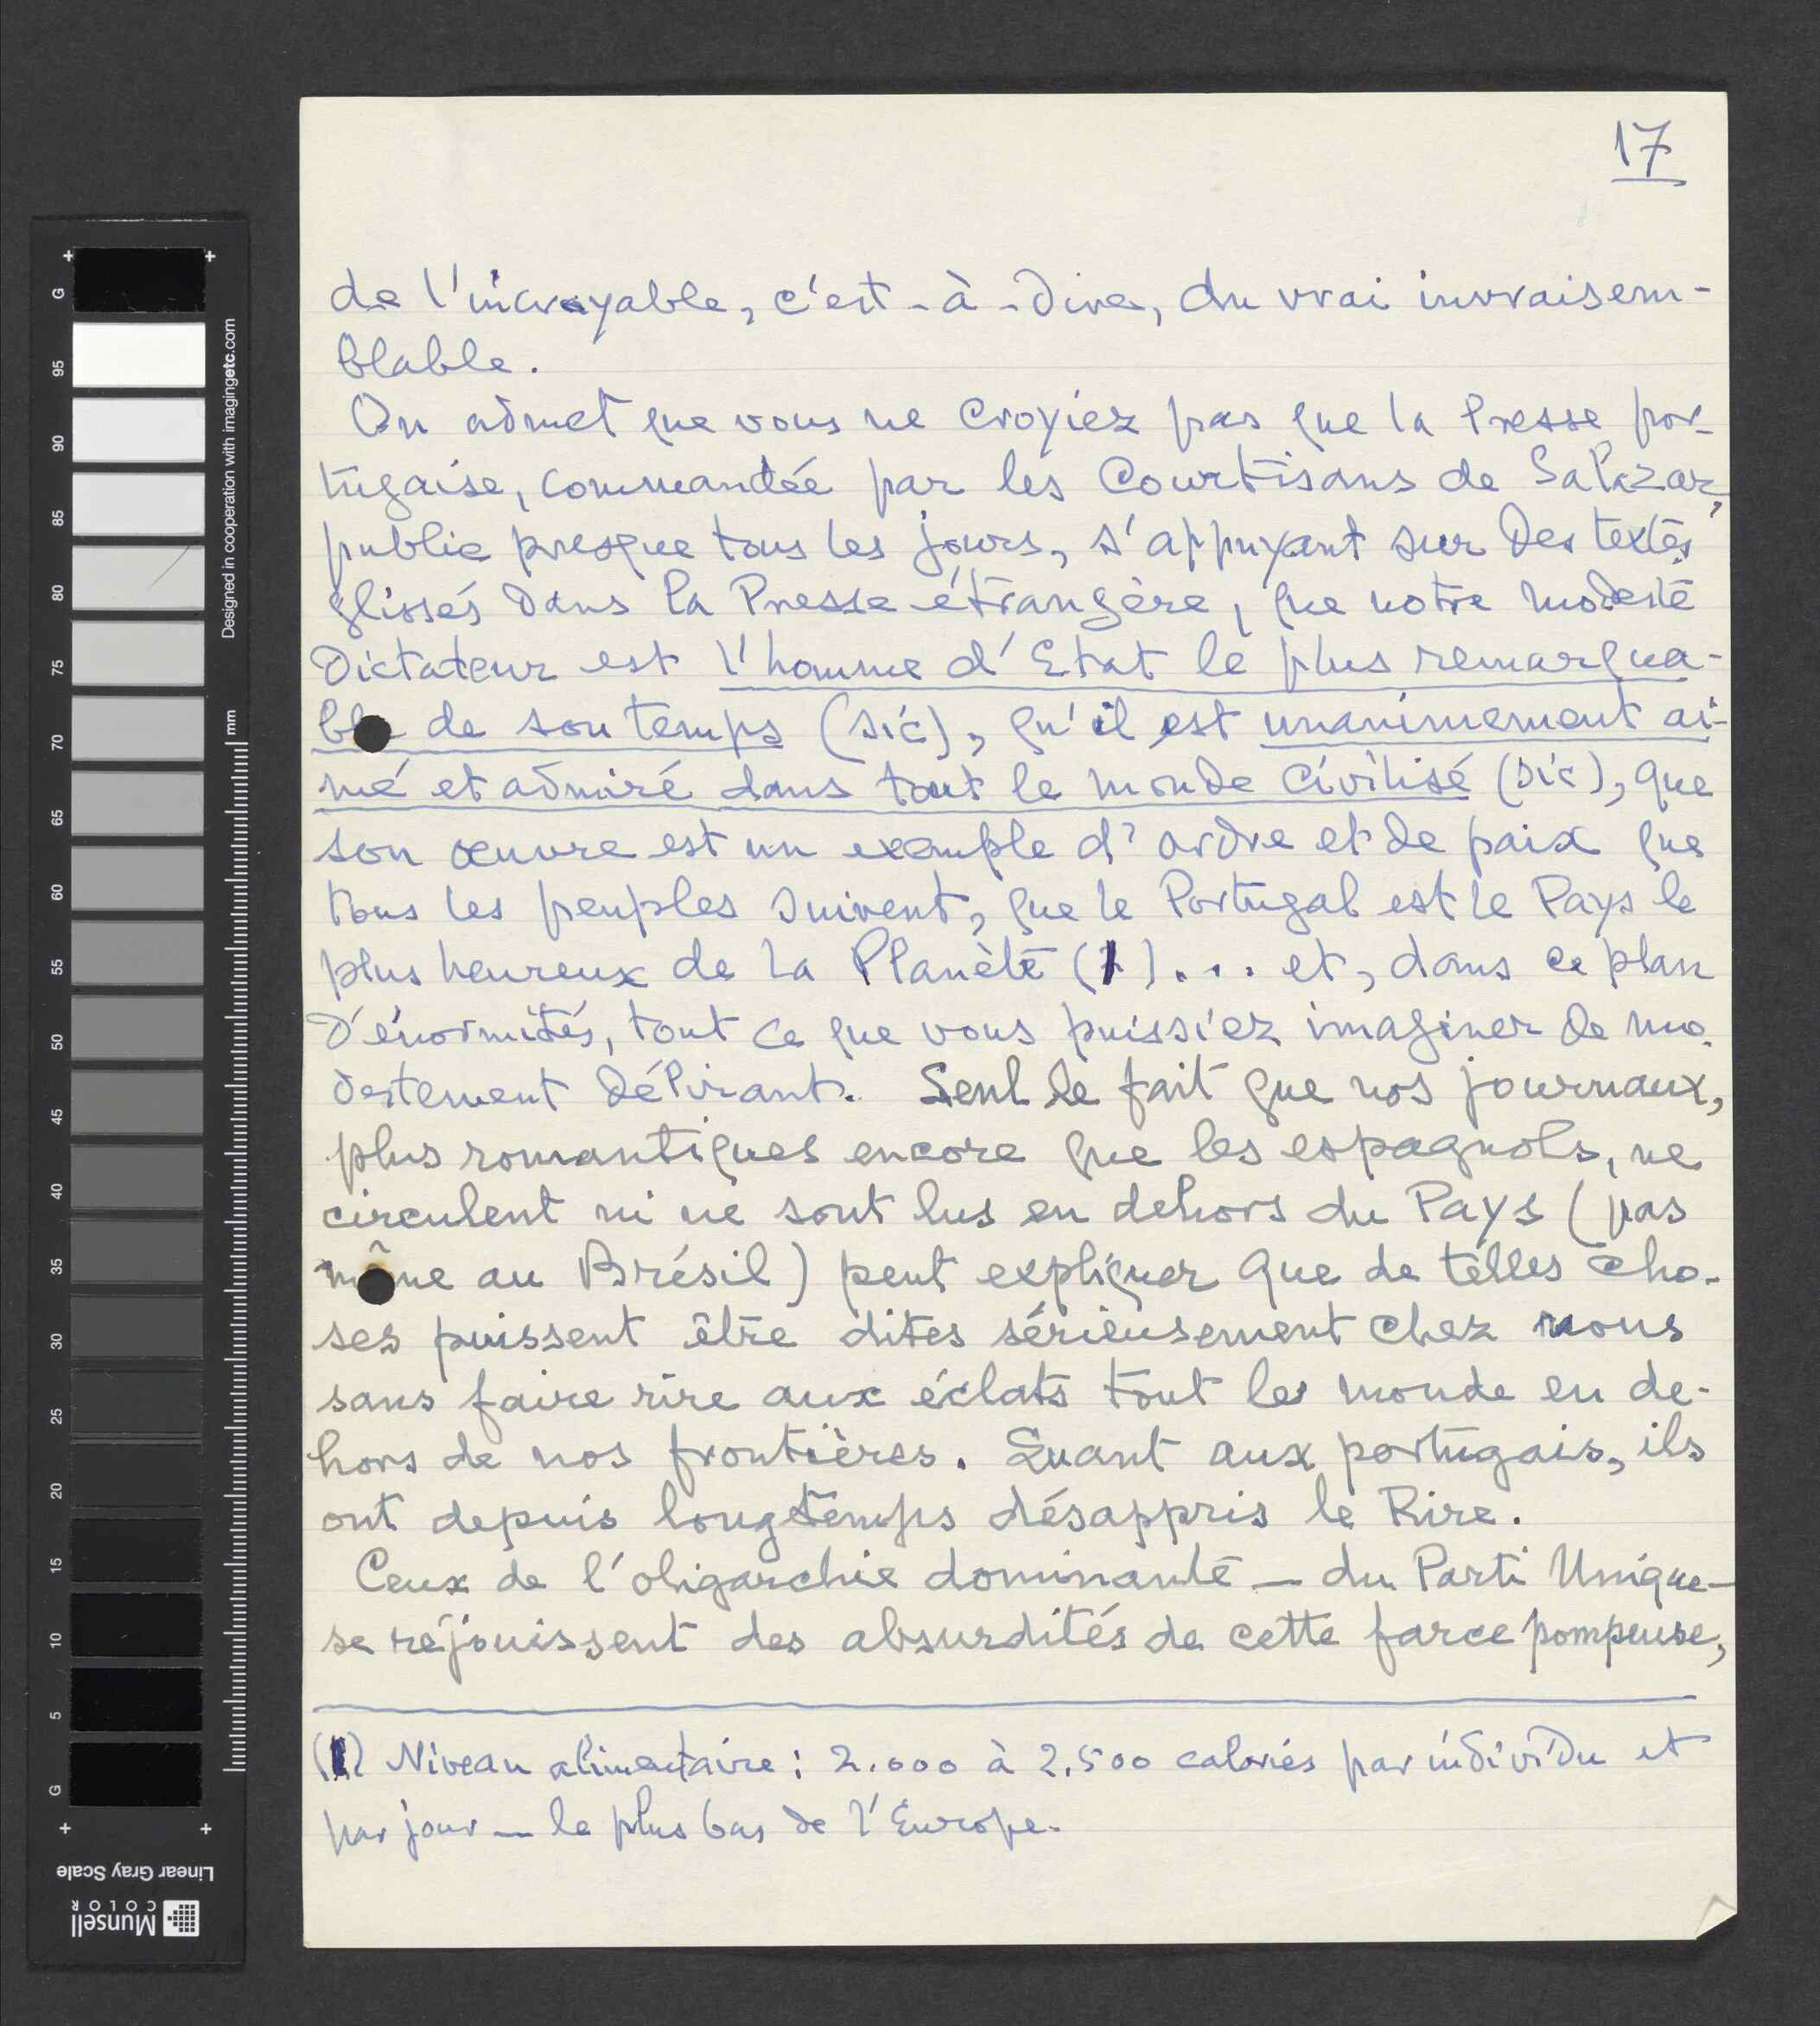 17
de l'incroyable, c'est-à-dire, du vrai invraisem-
blable.
On admet que vous ne croyiez pas que la Presse por-
tugaise, commandée par les Courtisans de Salazar,
publie presque tous les jours, s'appuyant sur des textes
glissés dans la Presse étrangère, que notre modeste
Dictateur est l'homme d'Etat le plus remarqua-
ble de son temps (sic), qu'il est unanimement ai-
mé et admiré dans tout le monde civilisé (sic), que
son œuvre est un exemple d'ordre et de paix que
tous les peuples suivent, que le Portugal est le Pays le
plus heureux de la Planète (1)... et, dans ce plan
d'énormités, tout ce que vous puissiez imaginer de mo-
destement délirant. Seul le fait que nos journaux,
plus romantiques encore que les espagnols, ne
circulent ni ne sont lus en dehors du Pays (pas
même au Brésil) peut expliquer que de telles cho-
ses puissent être dites sérieusement chez nous
sans faire rire aux éclats tout le monde en de-
hors de nos frontières. Quant aux portugais, ils
ont depuis longtemps désappris le Rire.
Ceux de l'oligarchie dominante — du Parti Unique —
se réjouissent des absurdités de cette farce pompeuse,
(1) Niveau alimentaire : 2.000 à 2.500 calories par individu et
par jour — le plus bas de l'Europe.
G
95
90
85
80
75
70
65
60
55
50
45
40
35
30
25
20
15
10
5
G
Designed in cooperation with imagingetc.com
mm
Linear Gray Scale
Munsell
COLOR